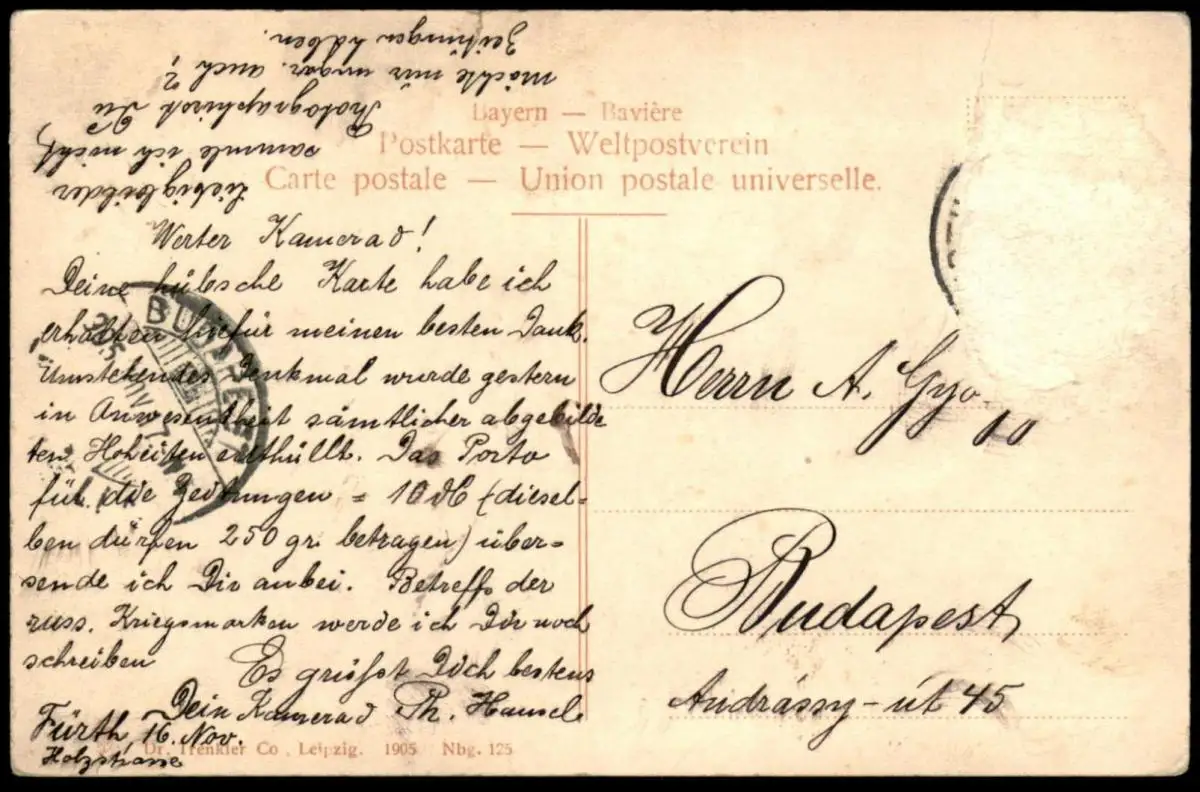 Bayern — Bavière
Postkarte — Weltpostverein
Carte postale — Union postale universelle.
Werter Kamerad!
Deine hübsche Karte habe ich
erhalten hiefür meinen besten Dank.
Umstehendes Denkmal wurde gestern
in Anwesenheit sämtlicher abgebilde
ten Hoheiten enthüllt. Das Porto
für die Zeitungen = 10 ₰ (diesel-
ben dürfen 250 gr. betragen) über-
sende ich Dir anbei. Betreffs der
russ. Kriegsmarken werde ich Dir noch
schreiben
Es grüßt Dich bestens
Dein Kamerad Th. Hansel
Fürth, 16. Nov.
Holzstrasse
Liebigbilder
sammle ich nicht,
Photographirst Du
auch?
möchte nur ungar.
Zeitungen haben.
Herrn A. Gyo
Budapest,
Andrássy-út 45
BUDAPEST
Dr. Trenkler Co., Leipzig. 1905 Nbg. 125